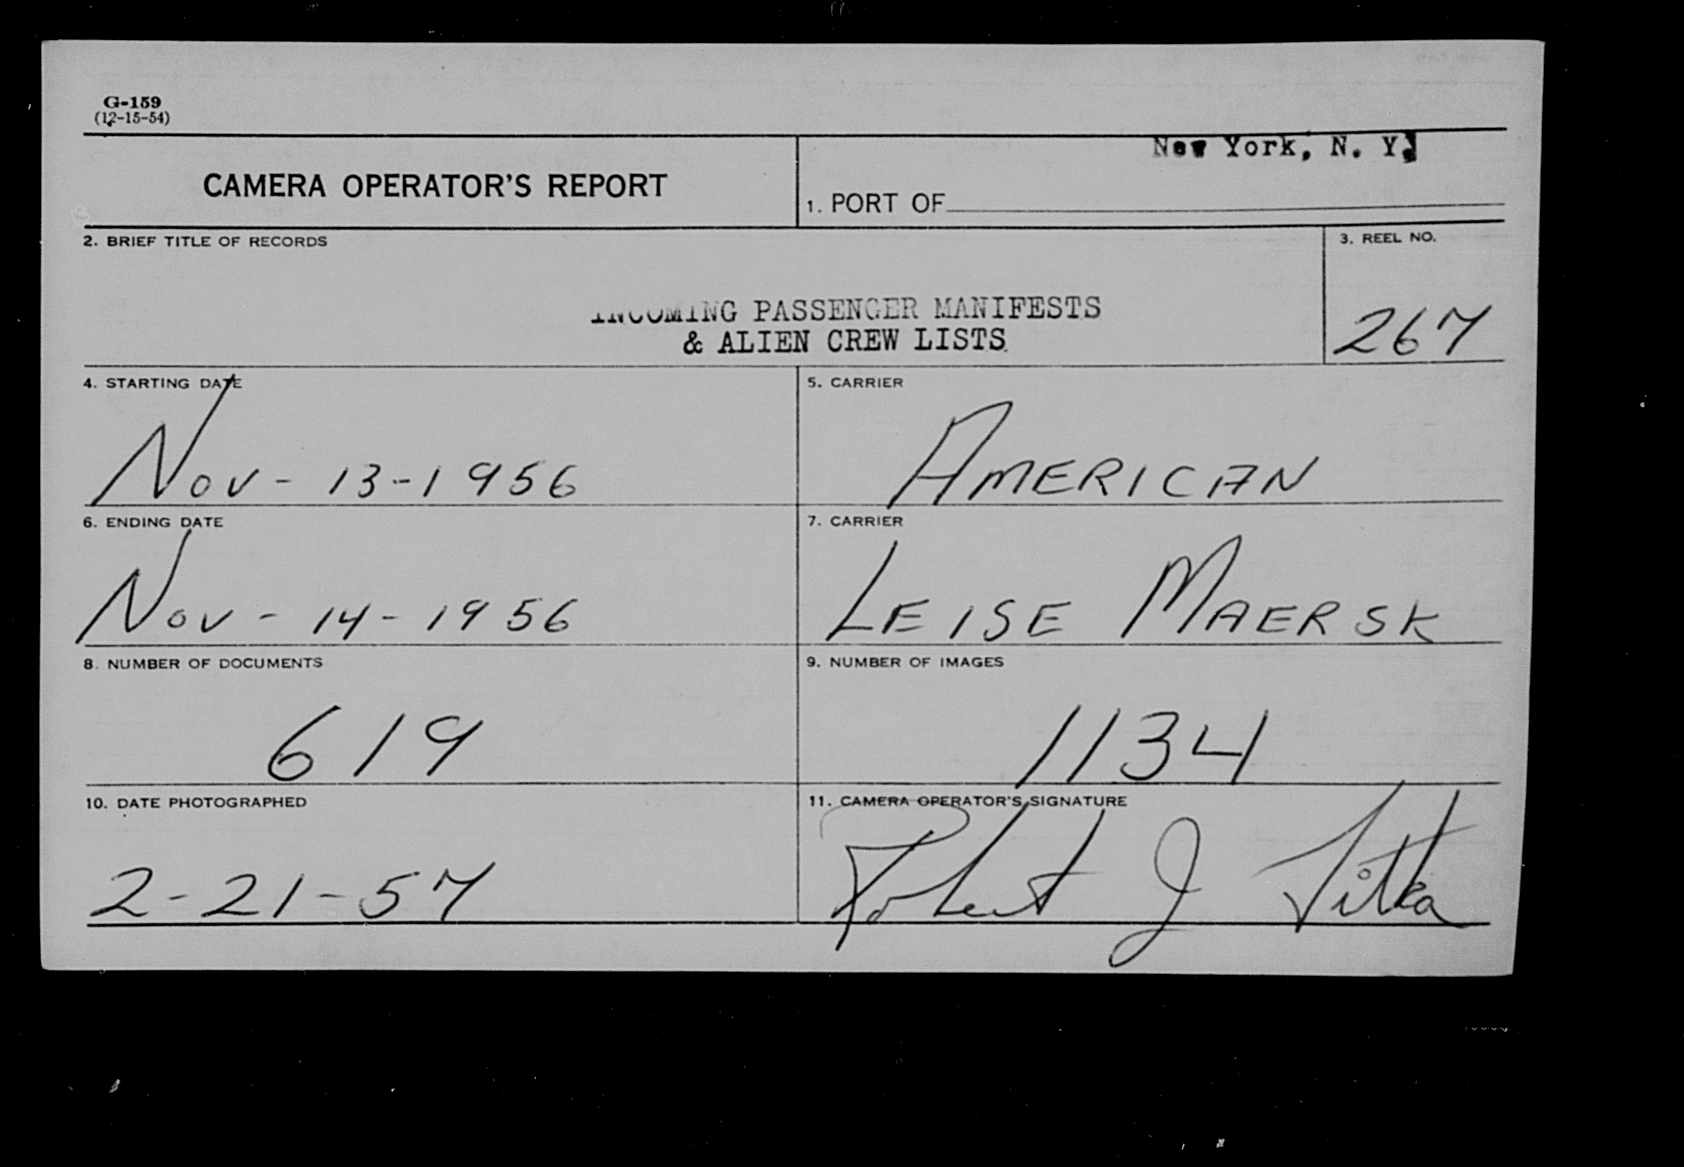 G-159
(12-15-54)
CAMERA OPERATOR'S REPORT
New York, N. Y.
1. PORT OF
2. BRIEF TITLE OF RECORDS
INCOMING PASSENGER MANIFESTS
& ALIEN CREW LISTS
3. REEL NO.
267
4. STARTING DATE
Nov - 13 - 1956
5. CARRIER
AMERICAN
6. ENDING DATE
Nov - 14 - 1956
7. CARRIER
LEISE MAERSK
8. NUMBER OF DOCUMENTS
619
9. NUMBER OF IMAGES
1134
10. DATE PHOTOGRAPHED
2-21-57
11. CAMERA OPERATOR'S SIGNATURE
Robert J